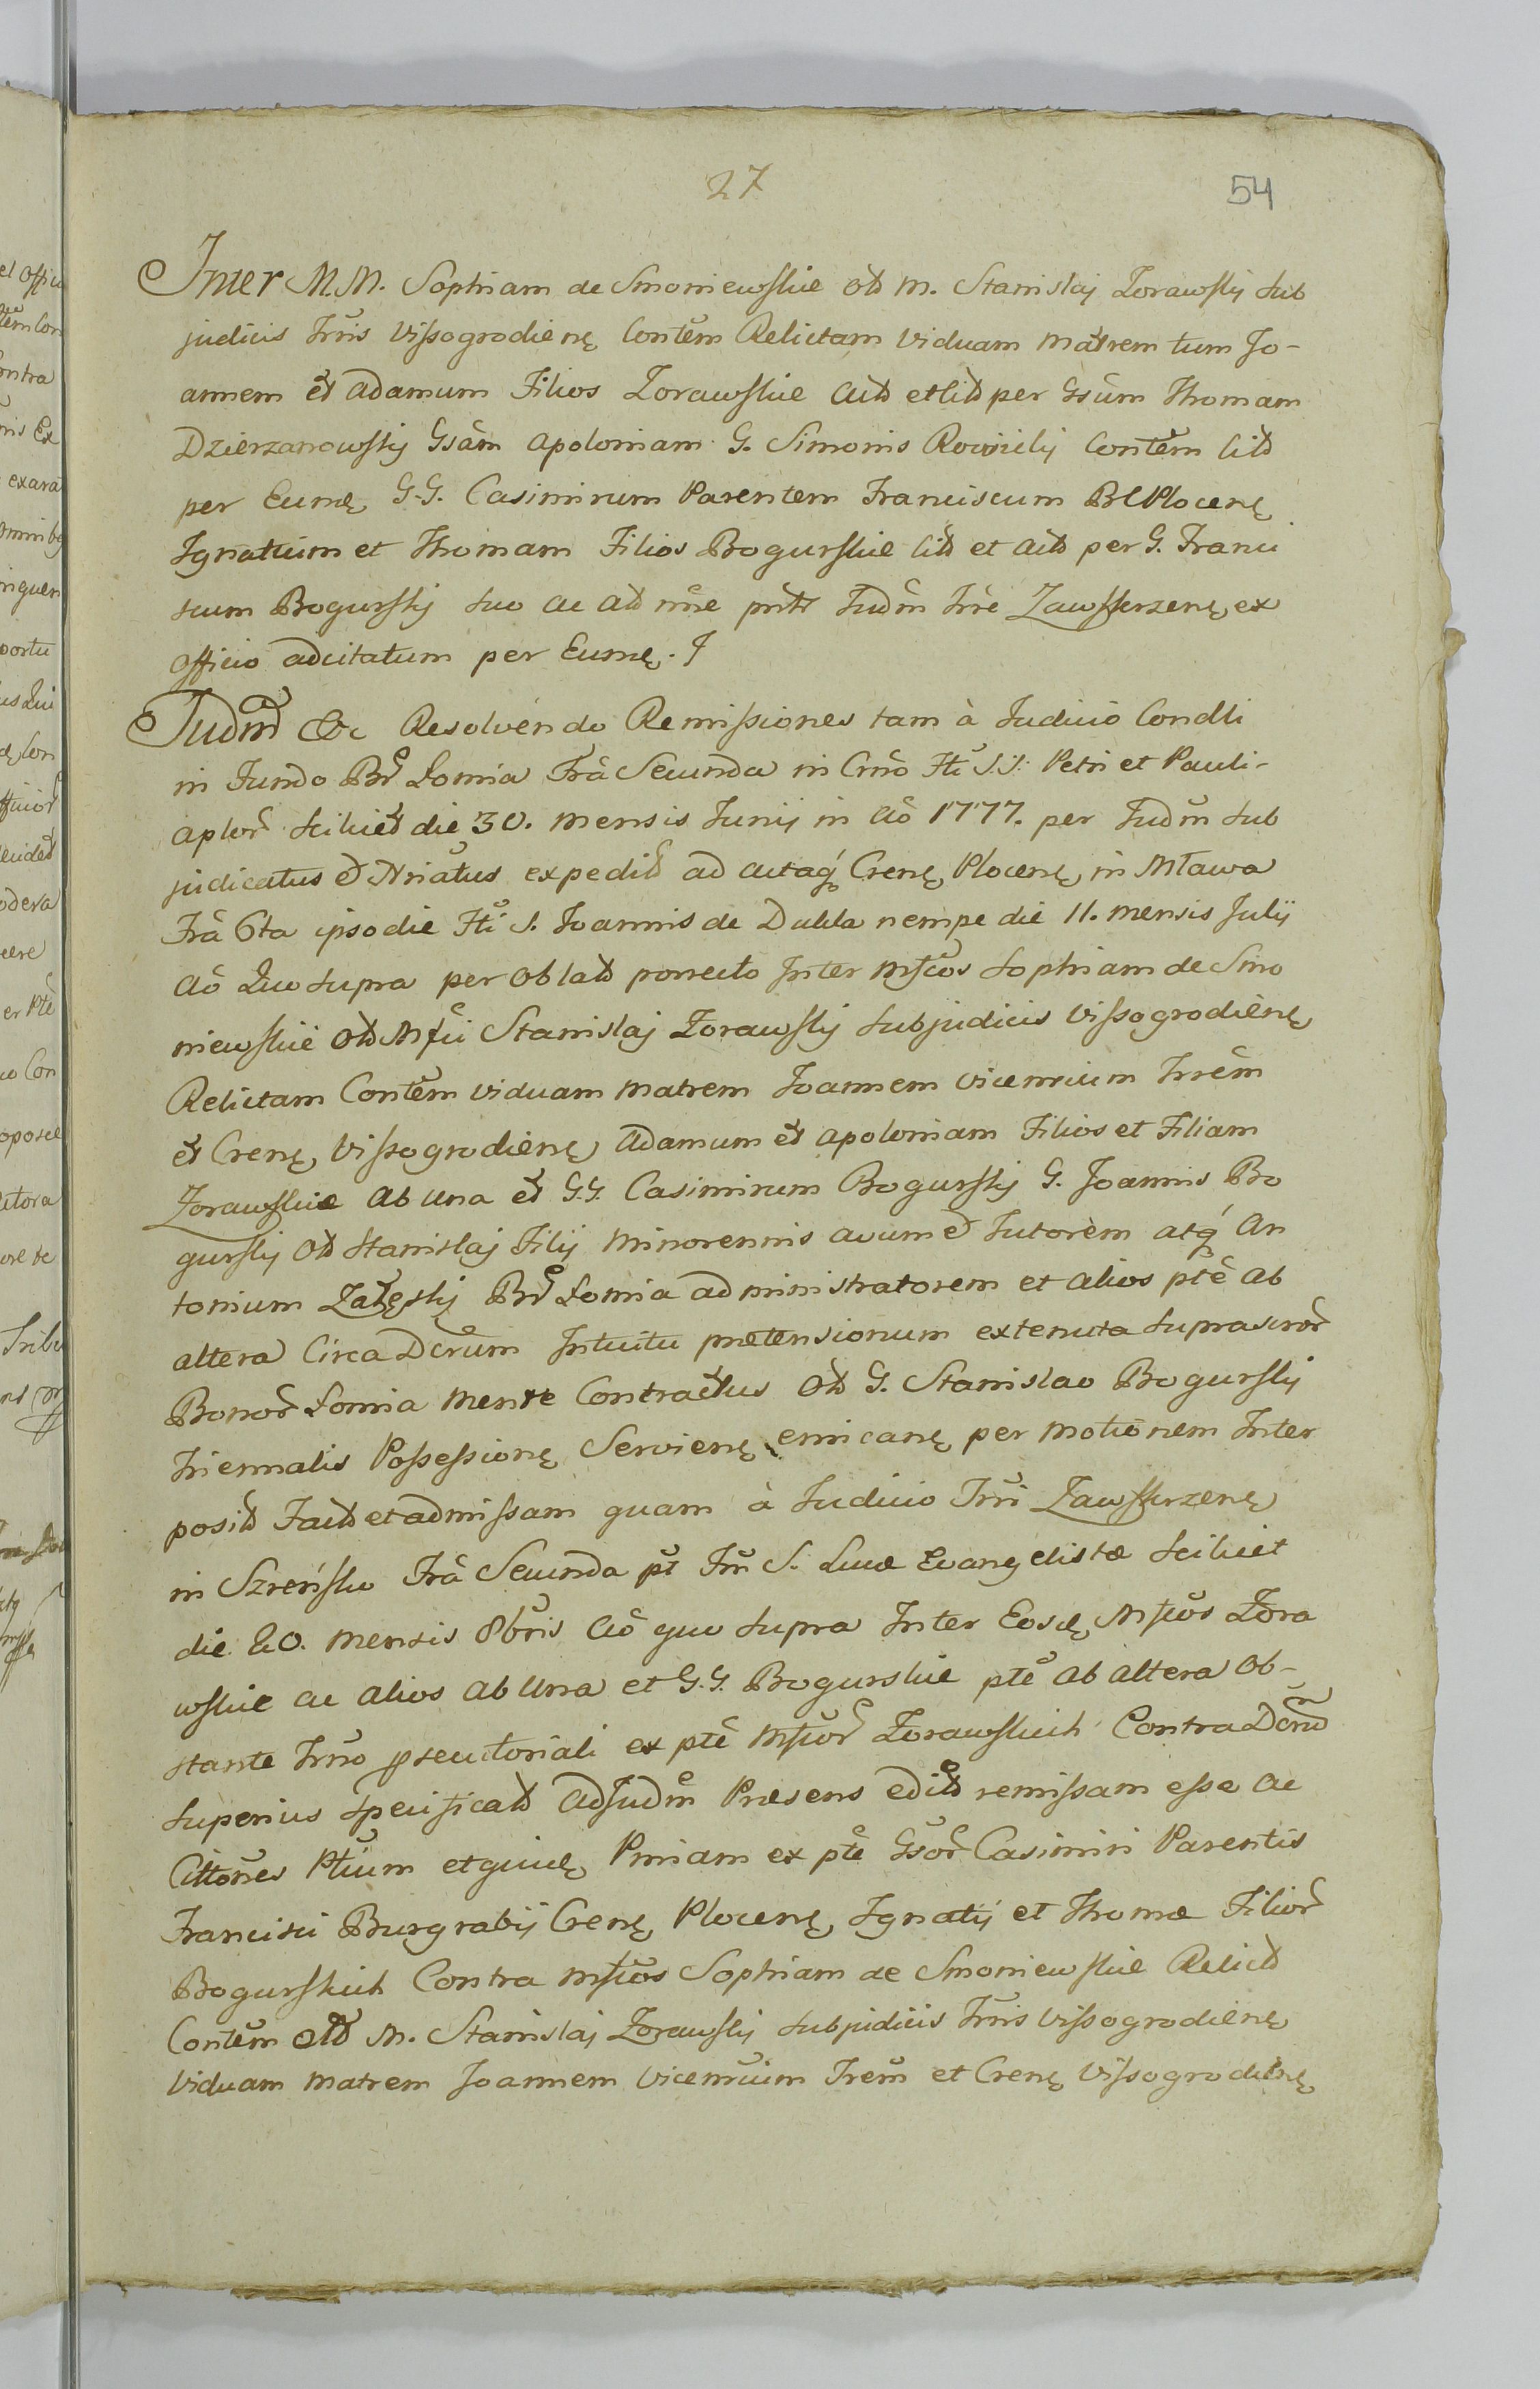 27
54
Inter M.M. Sophiam de Smoniewskie olỡ M. Stanislaj Zorawskj Sub
judicis Trris Vissogrodienę Contem Relictam Viduam Matrem tum Jo-
annem et Adamum Filios Zorawskie Actỡ et Citỡ per Gsum Thomam
Dzierzanowskj Gsam Apoloniam G. Simonis Contem Citỡ
per Eumę G.G. Casimirum Parentem Franciscum BC Plocenę
Ignatium et Thomam Filios Bogurskie Citỡ et Actỡ per G. Franci
scum Bogurskj suo ac aliỡ nne Judm Trre Zawskrzenę ex
Officio adcitatum per Eumę.
Judm &c Resolvendo Remissiones tam à Judicio Condli
in Fundo Br Łomia Fra Secunda in Crno Fti S.S. Petri et Pauli-
aplor Scilicet die 30. Mensis Junij in Ao 1777. per Judm Sub
judicatus et Nriatus expeditỡ ad actaq Crenę Plocenę in Mława
Fra 6ta ipso die Fti S. Joannis de Dukla nempe die 11. Mensis Julij
Ao Quo Supra per Oblatỡ porrecto Inter Mfcos Sophiam de Smo
niewskie olỡ Mfci Stanislaj Zorawskj Subjudicis Vissogrodienę
Relictam Contem Viduam Matrem Joannem Vicenrium Trrem
et Crenę Vissogrodienę Adamum et Apoloniam Filios et Filiam
Zorawskie ab una et G.G. Casimirum Bogurskj G. Joannis Bo
gurskj olỡ Stanislaj Filij Minorennis avum et Tutorem atq An
tonium Załęskj Br Łomia administratorem et alios pte ab
altera Circa Dcrum Intuitu prætensionum extenuta Suprascror
Bonor Łomia mente Contractus olỡ G. Stanislao Bogurskj
Triennalis Possessionę Servienę emicanę per Motionem Inter
positỡ Factỡ et admissam quam à Judicio Trri Zawskrzenę
in Szreńsko Fra Secunda pt Fm S. Lucæ Evangelistæ Scilicet
die 20. Mensis 8bris Ao quo Supra Inter Eosdę Mfcos Zora
wskie ac alios ab Una et G.G. Bogurskie pte ab altera ob-
stante Trno psecutoriali ex pte Mfcor Zorawskich Contra Dcrm
Superius Specificatỡ ad Judm Præsens editỡ remissam esse ac
Cittones Ptium et quidę Pmiam ex pte Gsor Casimiri Parentis
Francisci Burgrabij Crenę Plocenę Ignatij et Thomæ Filior
Bogurskich Contra Mfcos Sophiam de Smoniewskie Relictỡ
Contem olỡ M. Stanislaj Zorawskj Subjudicis Trris Vissogrodienę
Viduam Matrem Joannem Vicenrium Trrem et Crenę Vissogrodienę